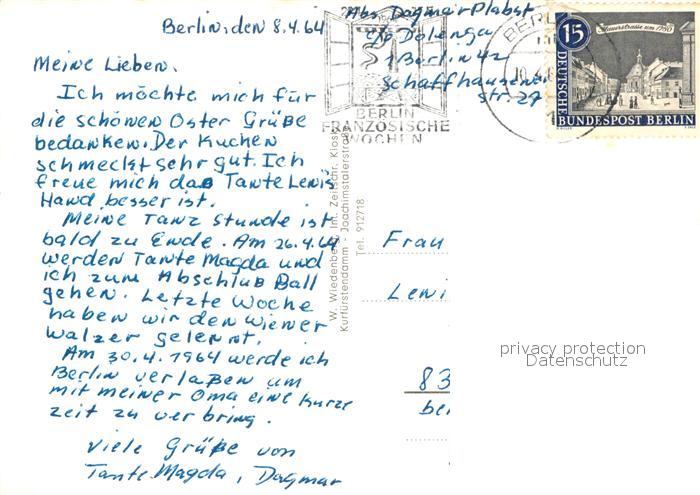 Berlin, den 8.4.64
Meine Lieben.
Ich möchte mich für
die schönen Oster Grüße
bedanken. Der Kuchen
schmeckt sehr gut. Ich
freue mich das Tante Lenis
Hand besser ist.
Meine Tanz stunde ist
bald zu Ende. Am 26.4.64
werden Tante Magda und
ich zum Abschluß Ball
gehen. Letzte Woche
haben wir den wiener
walzer gelernt.
Am 30.4.1964 werde ich
Berlin verlaßen um
mit meiner Oma eine kurze
zeit zu verbring.
Viele Grüße von
Tante Magda, Dagmar
Abs. Dagmar Plabst
c/o Dolenga
1 Berlin 42
Schaffhausener
str. 27
BERLIN
FRANZÖSISCHE
WOCHEN
BERLIN
15
Mauerstrasse um 1780
DEUTSCHE
BUNDESPOST BERLIN
W. Wiedenbeck Int. Zeitschr. Kiosk
Kurfürstendamm - Joachimstalerstraße
Tel. 912718
Frau
Leni
83
ber
privacy protection
Datenschutz